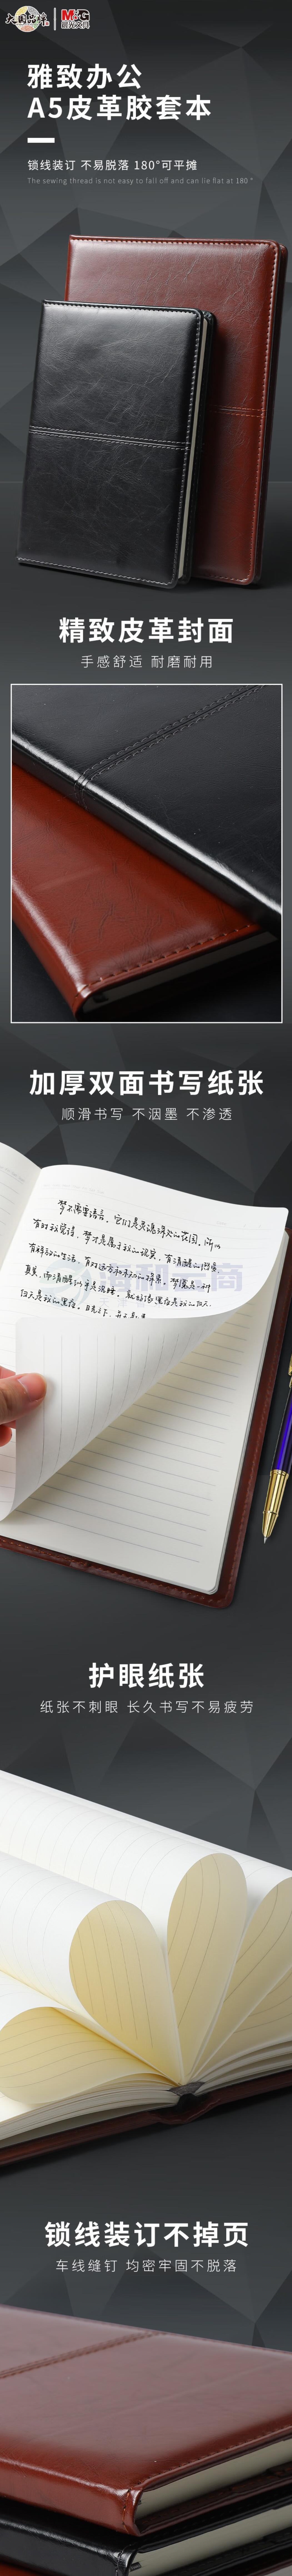 大国品牌
M&G
晨光文具
雅致办公
A5皮革胶套本
锁线装订 不易脱落 180°可平摊
The sewing thread is not easy to fall off and can lie flat at 180 °
精致皮革封面
手感舒适 耐磨耐用
加厚双面书写纸张
顺滑书写 不洇墨 不渗透
梦不需要语言，它们是灵魂深处的花园，所以
有时我觉得，梦才是属于我的现实，有清醒的
有移动的生活，有
真美，而清醒
白天是我的黑夜。
护眼纸张
纸张不刺眼 长久书写不易疲劳
锁线装订不掉页
车线缝钉 均密牢固不脱落